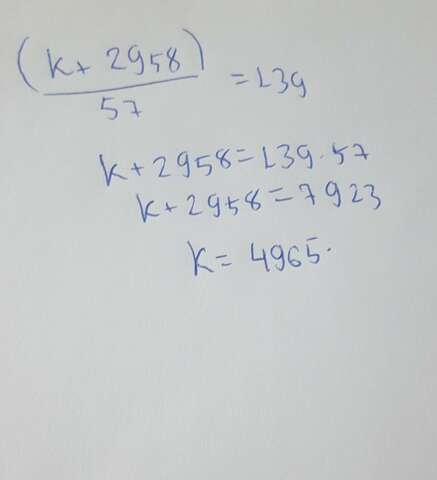 (k+ 2958)
57
=139
k+2958=139·57
k+2958=7923
K= 4965.